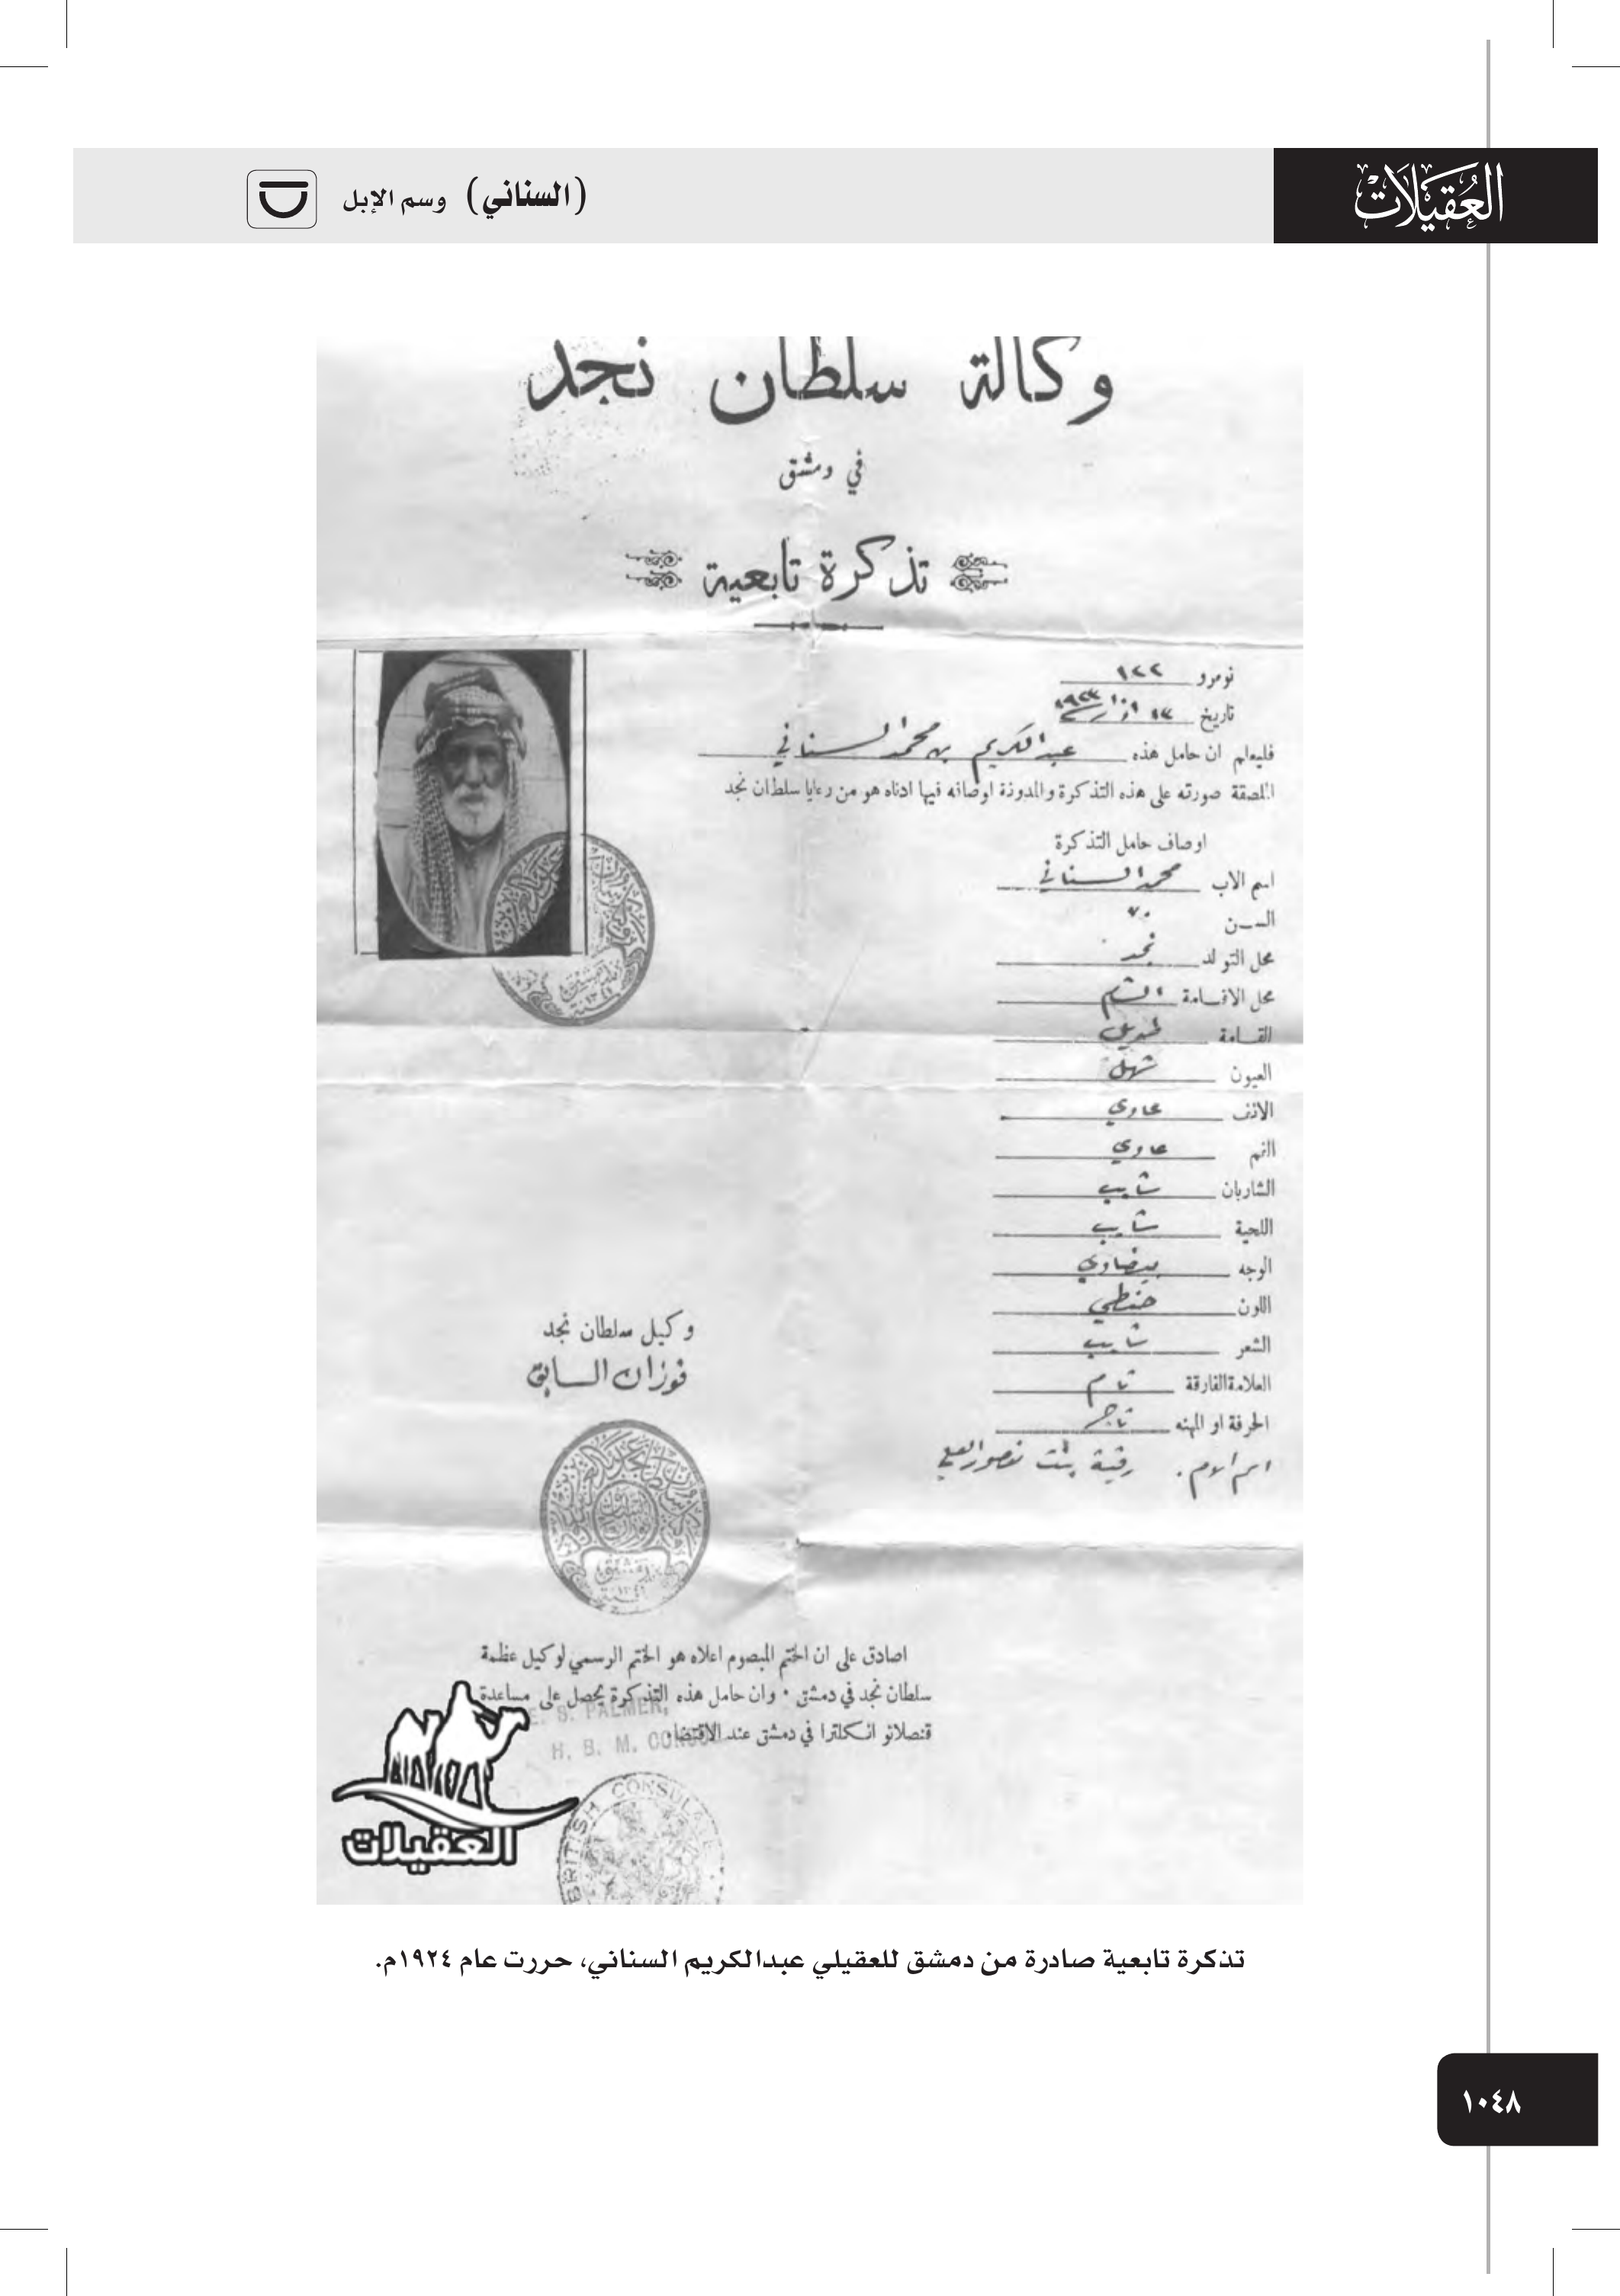 العُقيلات
(السناني) وسم الإبل
وكالة سلطان نجد
في دمشق
تذكرة تابعية
نومرو ١٢٢
تاريخ ١٣ اذار ١٩٢٣
فليعلم ان حامل هذه عبد الكريم بن محمد السناني
الملصقة صورته على هذه التذكرة والمدونة اوصافه فيها ادناه هو من رعايا سلطان نجد
اوصاف حامل التذكرة
اسم الاب محمد السناني
الســن ٧٠
محل التولد نجد
محل الاقــامة الشام
القــامة طويل
العيون شهل
الانف عادي
الفم عادي
الشاربان شايب
اللحية شايب
الوجه بيضاوي
اللون حنطي
الشعر شايب
العلامة الفارقة تام
الحرفة او المهنه تاجر
اسم الام. رقية بنت منصور العلي
وكيل سلطان نجد
فوزان السابق
دمشق
سنة ١٣٤١
اصادق على ان الختم المبصوم اعلاه هو الختم الرسمي لوكيل عظمة
سلطان نجد في دمشق ٠ وان حامل هذه التذكرة يحصل على مساعدة
قنصلاتو انكلترا في دمشق عند الاقتضاء
E. S. PALMER,
H. B. M. CONSUL
BRITISH CONSULATE
العقيلات
تذكرة تابعية صادرة من دمشق للعقيلي عبدالكريم السناني، حررت عام ١٩٢٤م.
١٠٤٨